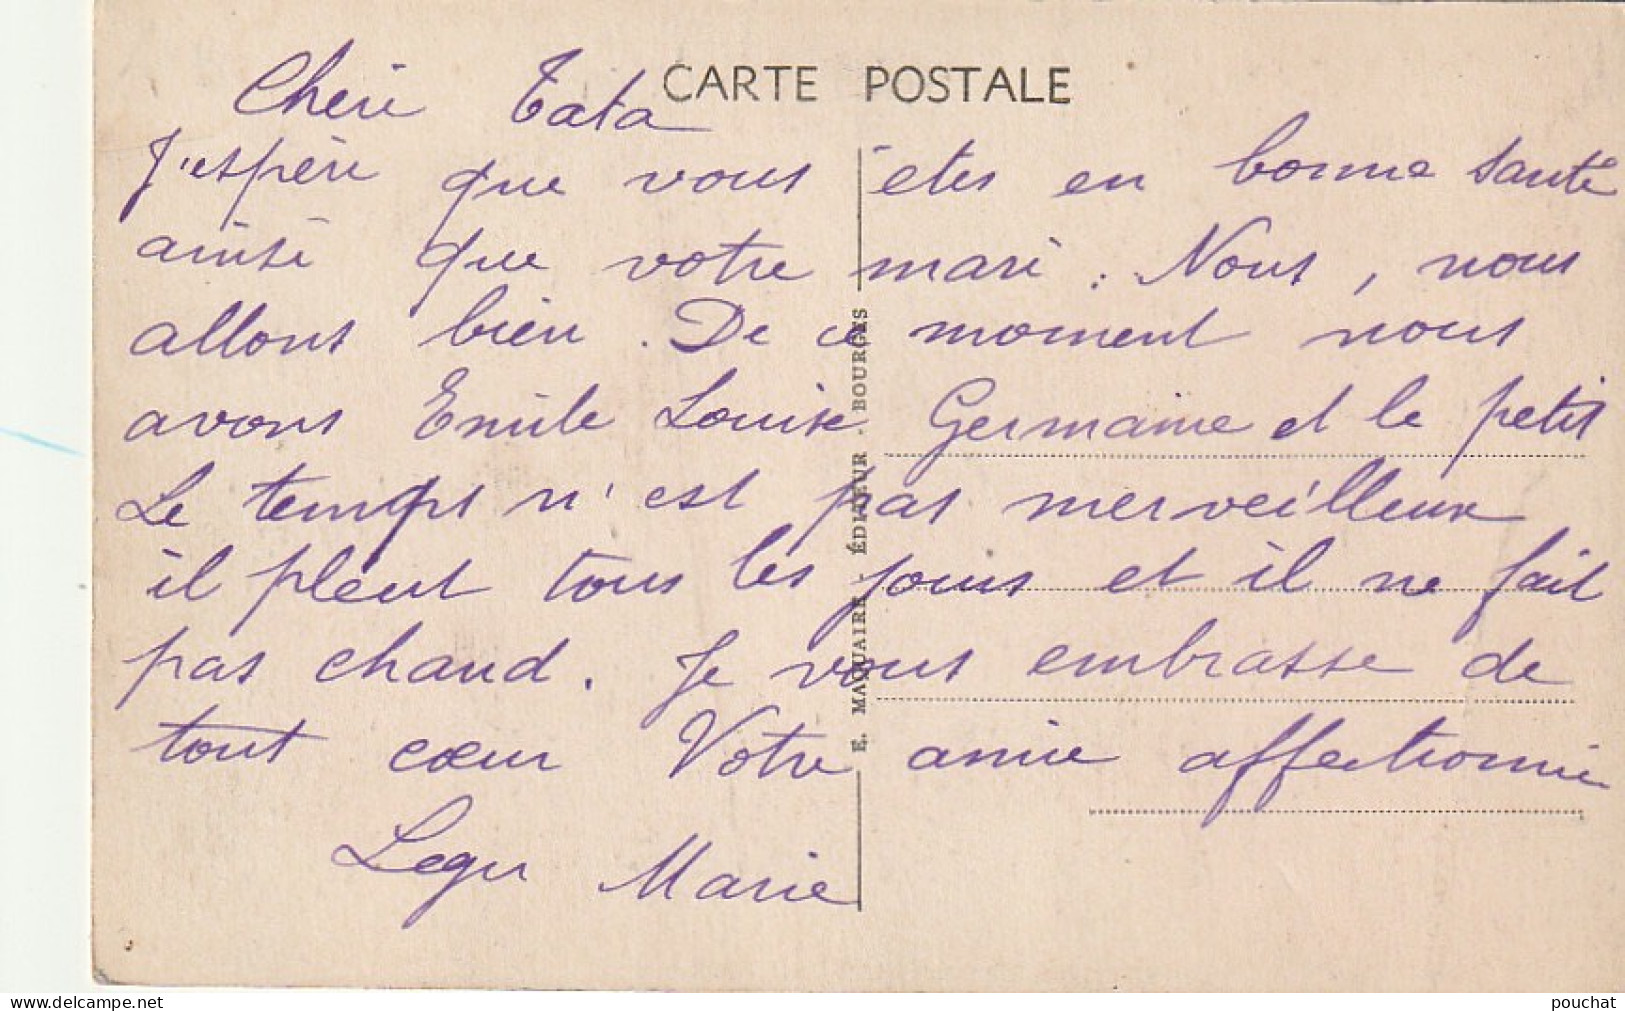 CARTE POSTALE
Chéri Tata
J'espère que vous êtes en bonne santé
ainsi que votre mari. Nous, nous
allons bien. De ce moment nous
avons Emile Louise Germaine et le petit
Le temps n'est pas merveilleux
il pleut tous les jours et il ne fait
pas chaud. Je vous embrasse de
tout cœur Votre amie affectionnée
Leger Marie
E. MAQUAIRE. ÉDITEUR. BOURGES
www.delcampe.net
pouchat